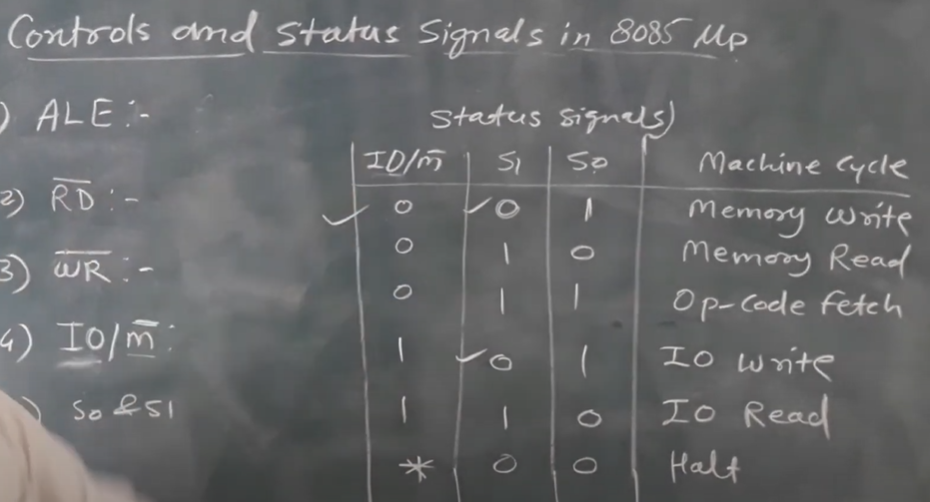 Controls and Status Signals in 8085 Mp
) ALE :-
2) R̅D̅ :-
3) W̅R̅ :-
4) IO/m̅ :
) S0 & S1
Status signals)
IO/m̅ S1 S0 Machine Cycle
✓ 0 ✓ 0 1 Memory Write
0 1 0 Memory Read
0 1 1 Op-Code Fetch
1 ✓ 0 1 IO Write
1 1 0 IO Read
* 0 0 Halt